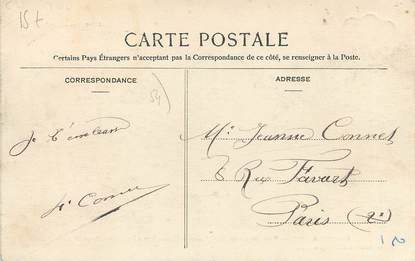 15 t
CARTE POSTALE
Certains Pays Étrangers n'acceptant pas la Correspondance de ce côté, se renseigner à la Poste.
CORRESPONDANCE
ADRESSE
54
Je t'embrasse
Mle Jeanne Connet
8 Rue Favart
Paris (2e)